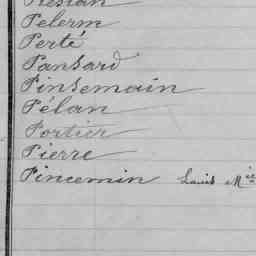 Pelerm
Perté
Pansard
Pinsemain
Pélan
Portier
Pierre
Pincemin Louis Mie